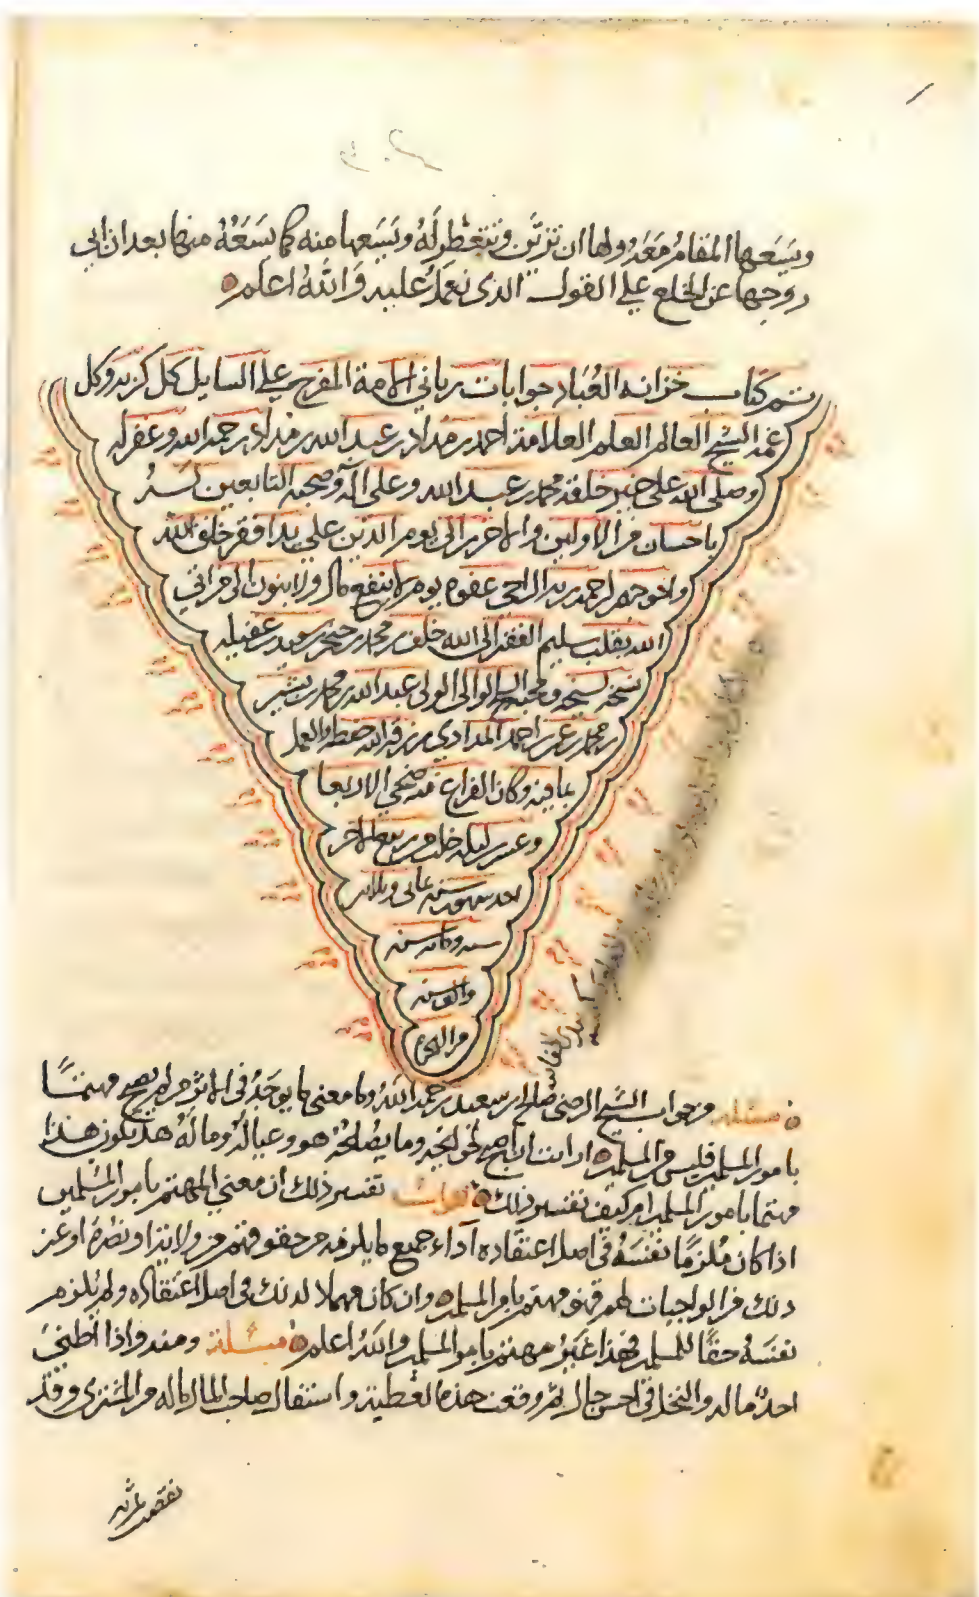 ويسعها المقام معه ولها ان تزين وتتعطر له ويسعها منه كما يسعه منها بعد ان ابى
زوجها عن الخلع على القول الذي نعمل عليه والله اعلم
تم كتاب خزانة العباد جوابات رباني الامة المفرج على السايل كل كربة وكل
غمة الشيخ العالم العلم العلامة احمد بن مداد بن عبدالله بن مداد رحمه الله وغفر له
وصلى الله على خير خلقه محمد بن عبد الله وعلى اله وصحبه التابعين
باحسان من الاولين والاخرين الى يوم الدين على يد افقر خلق الله
واحوجهم لرحمة ربه الراجي عفوه يوم لا ينفع مال ولا بنون الا من اتى
الله بقلب سليم الفقير الى الله خلف بن محمد بن خنجر بن سعيد بن غفيله
نسخه لشيخه ومحبه الشيخ الوالي الولي عبد الله بن محمد بن بشير
بن محمد بن عمر بن احمد المدادي رزقه الله حفظه والعمل
بما فيه وكان الفراغ منه ضحى الاربعا
وعشر ليلة خلت من ربيع الاخر
احد شهور سنة ثماني وثلاثين
سنة ومائة سنة
والف سنة
من الهجرة
مسئلة ومن جواب الشيخ الرضي صالح بن سعيد رحمه الله وما معنى ما يوجد في الاثر من لم يصبح مهتما
بامور المسلمين فليس من المسلمين ارايت ان اصبح في وما يصلحه هو وعياله وماله هل يكون هذا
مهتما بامور المسلمين ام كيف تفسير ذلك الجواب تفسير ذلك ان معنى المهتم بامور المسلمين
اذا كان ملزما نفسه في اصل اعتقاده اداء جميع ما يلزمه من حقوقهم من ولاية او نصرة او غير
ذلك من الواجبات لهم فهو مهتم بامر المسلمين وان كان مهملا لذلك في اصل اعتقاده ولم يلزم
نفسه حقا للمسلمين فهذا غير مهتم بامر المسلمين والله اعلم مسئلة ومنه واذا اطنى
احد ماله والنخل في احسن حال ثم وقعت هذه واستقال صاحب المال ماله من المشتري وقد
نقصت ثمرته